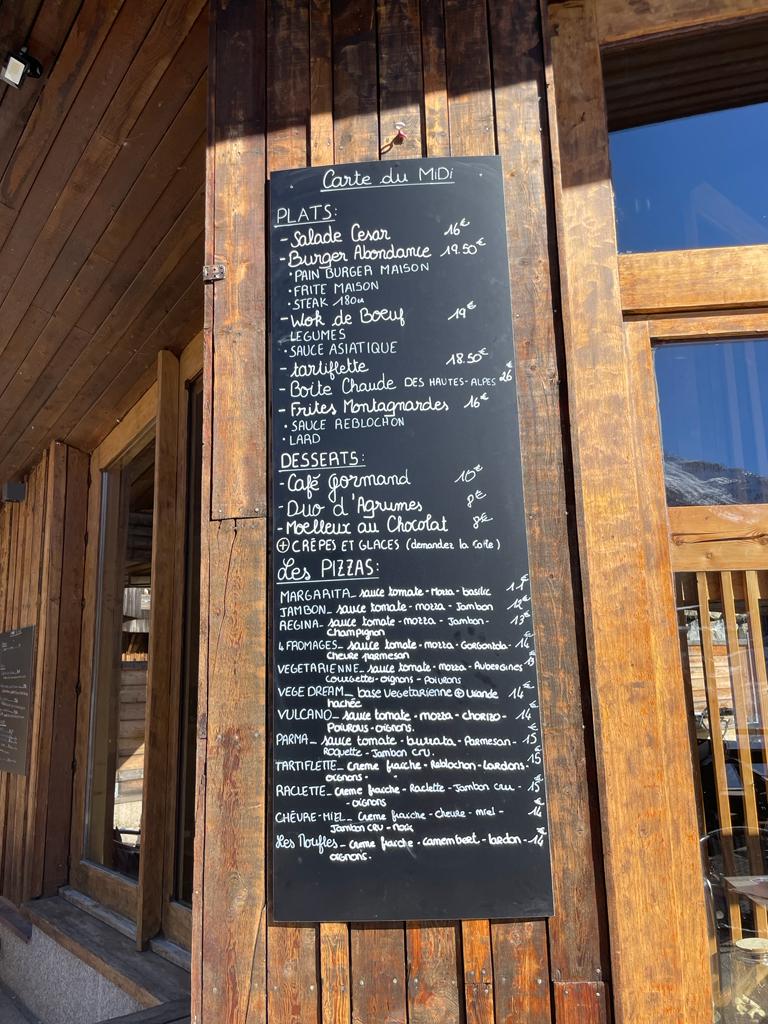 Carte du MiDi
PLATS:
- Salade Cesar 16€
- Burger Abondance 19.50€
• PAIN BURGER MAISON
• FRITE MAISON
• STEAK 180
- Wok de Boeuf 19€
LEGUMES
• SAUCE ASIATIQUE
- tartiflette 18.50€
- Boîte Chaude DES HAUTES-ALPES 26€
- Frites Montagnardes 16€
• SAUCE REBLOCHON
• LARD
DESSERTS:
- Café gormand 10€
- Duo d'Agrumes 8€
- Moelleux au Chocolat 8€
⊕ CRÊPES ET GLACES (demandez la carte)
Les PIZZAS:
MARGARITA_ sauce tomate - Mozza - basilic
JAMBON_ sauce tomate - mozza - Jambon 12€
REGINA_ sauce tomate - mozza - Jambon - 13€
Champignon
4 FROMAGES_ sauce tomate - mozza - Gorgonzola - 14€
Chevre parmesan
VEGETARIENNE_ sauce tomate - mozza - Aubergines
Courgettes - oignons - Poivrons
VEGE DREAM_ base vegetarienne ⊕ viande 14€
hachée
VULCANO_ sauce tomate - mozza - chorizo - 14
Poivrons - oignons.
PARMA_ sauce tomate - burrata - Parmesan - 15€
Roquette - Jambon cru.
TARTIFLETTE_ Creme fraiche - Reblochon - lardons - 15€
oignons -
RACLETTE_ Creme fraiche - Raclette - Jambon cru - 15€
- oignons
CHÈVRE-MIEL_ Creme fraiche - chevre - miel - 14€
Jambon cru - noix
Les Noufles_ creme fraiche - camembert - lardon - 14€
oignons.